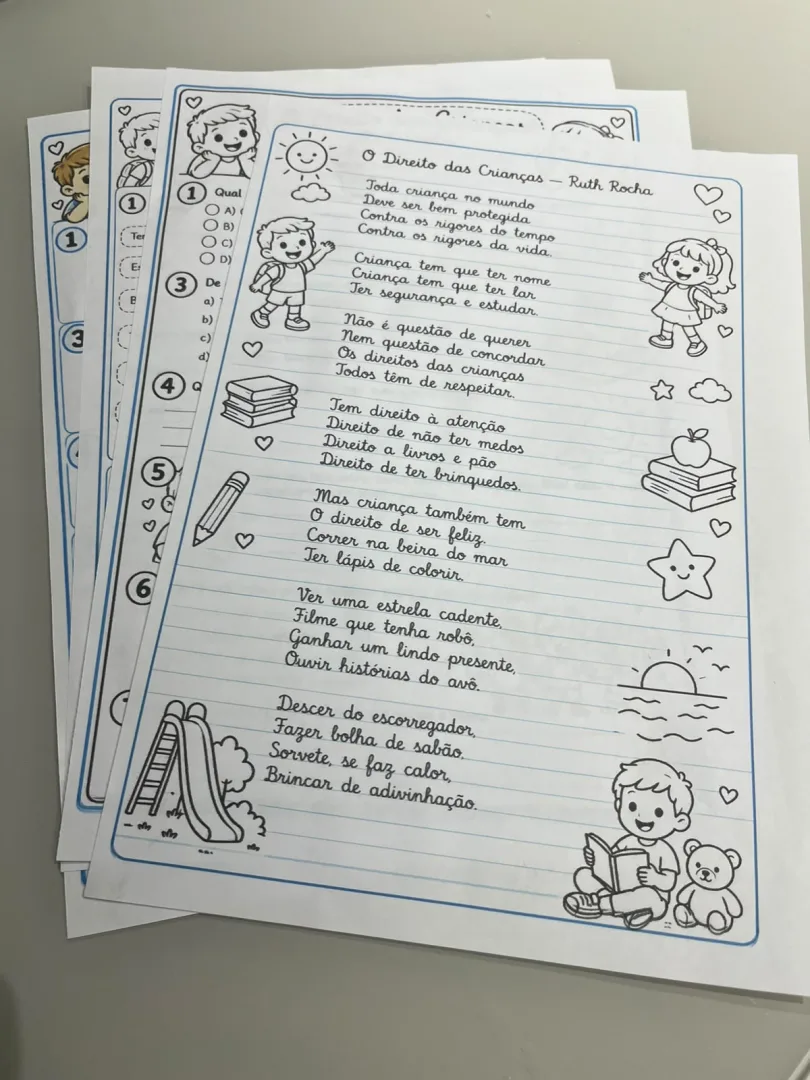 O Direito das Crianças — Ruth Rocha
Toda criança no mundo
Deve ser bem protegida
Contra os rigores do tempo
Contra os rigores da vida.
Criança tem que ter nome
Criança tem que ter lar
Ter segurança e estudar.
Não é questão de querer
Nem questão de concordar
Os direitos das crianças
Todos têm de respeitar.
Tem direito à atenção
Direito de não ter medos
Direito a livros e pão
Direito de ter brinquedos.
Mas criança também tem
O direito de ser feliz.
Correr na beira do mar
Ter lápis de colorir.
Ver uma estrela cadente,
Filme que tenha robô,
Ganhar um lindo presente,
Ouvir histórias do avô.
Descer do escorregador,
Fazer bolha de sabão,
Sorvete, se faz calor,
Brincar de adivinhação.
1 Qual
A)
B)
C)
D)
3 De
a)
b)
c)
d)
4 Q
5
6
1
Ter
E
B
1
3